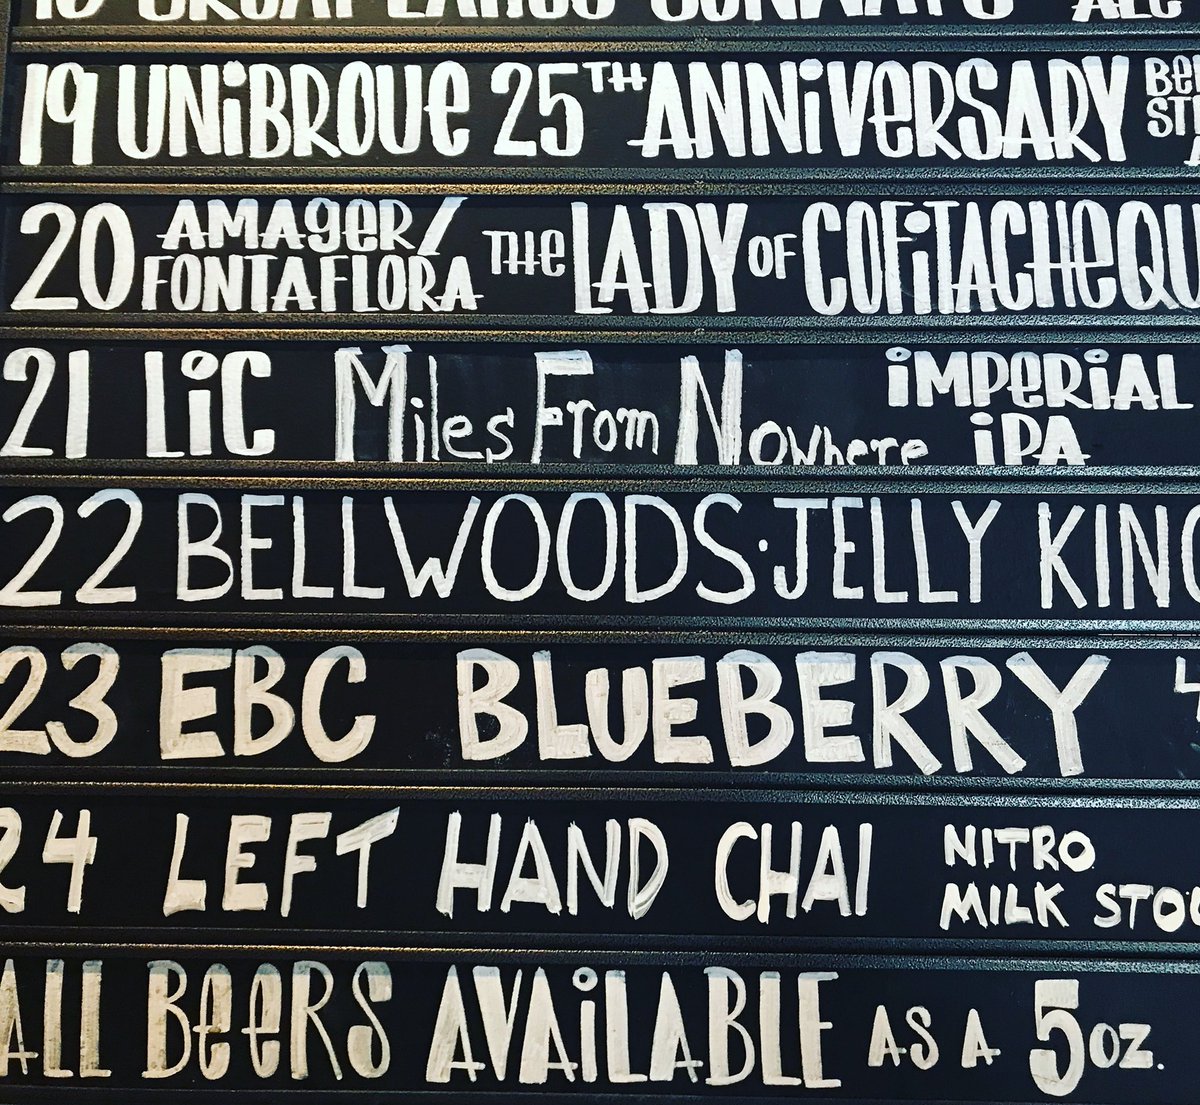 19 UNIBROUE 25TH ANNIVERSARY
20 AMAGER/ FONTAFLORA THE LADY OF COFITACHEQU
21 LiC Miles From Nowhere iMPERiAL iPA
22 BELLWOODS · JELLY KING
23 EBC BLUEBERRY
24 LEFT HAND CHAI NITRO MILK STOU
ALL BEERS AVAiLABLE AS A 5 OZ.